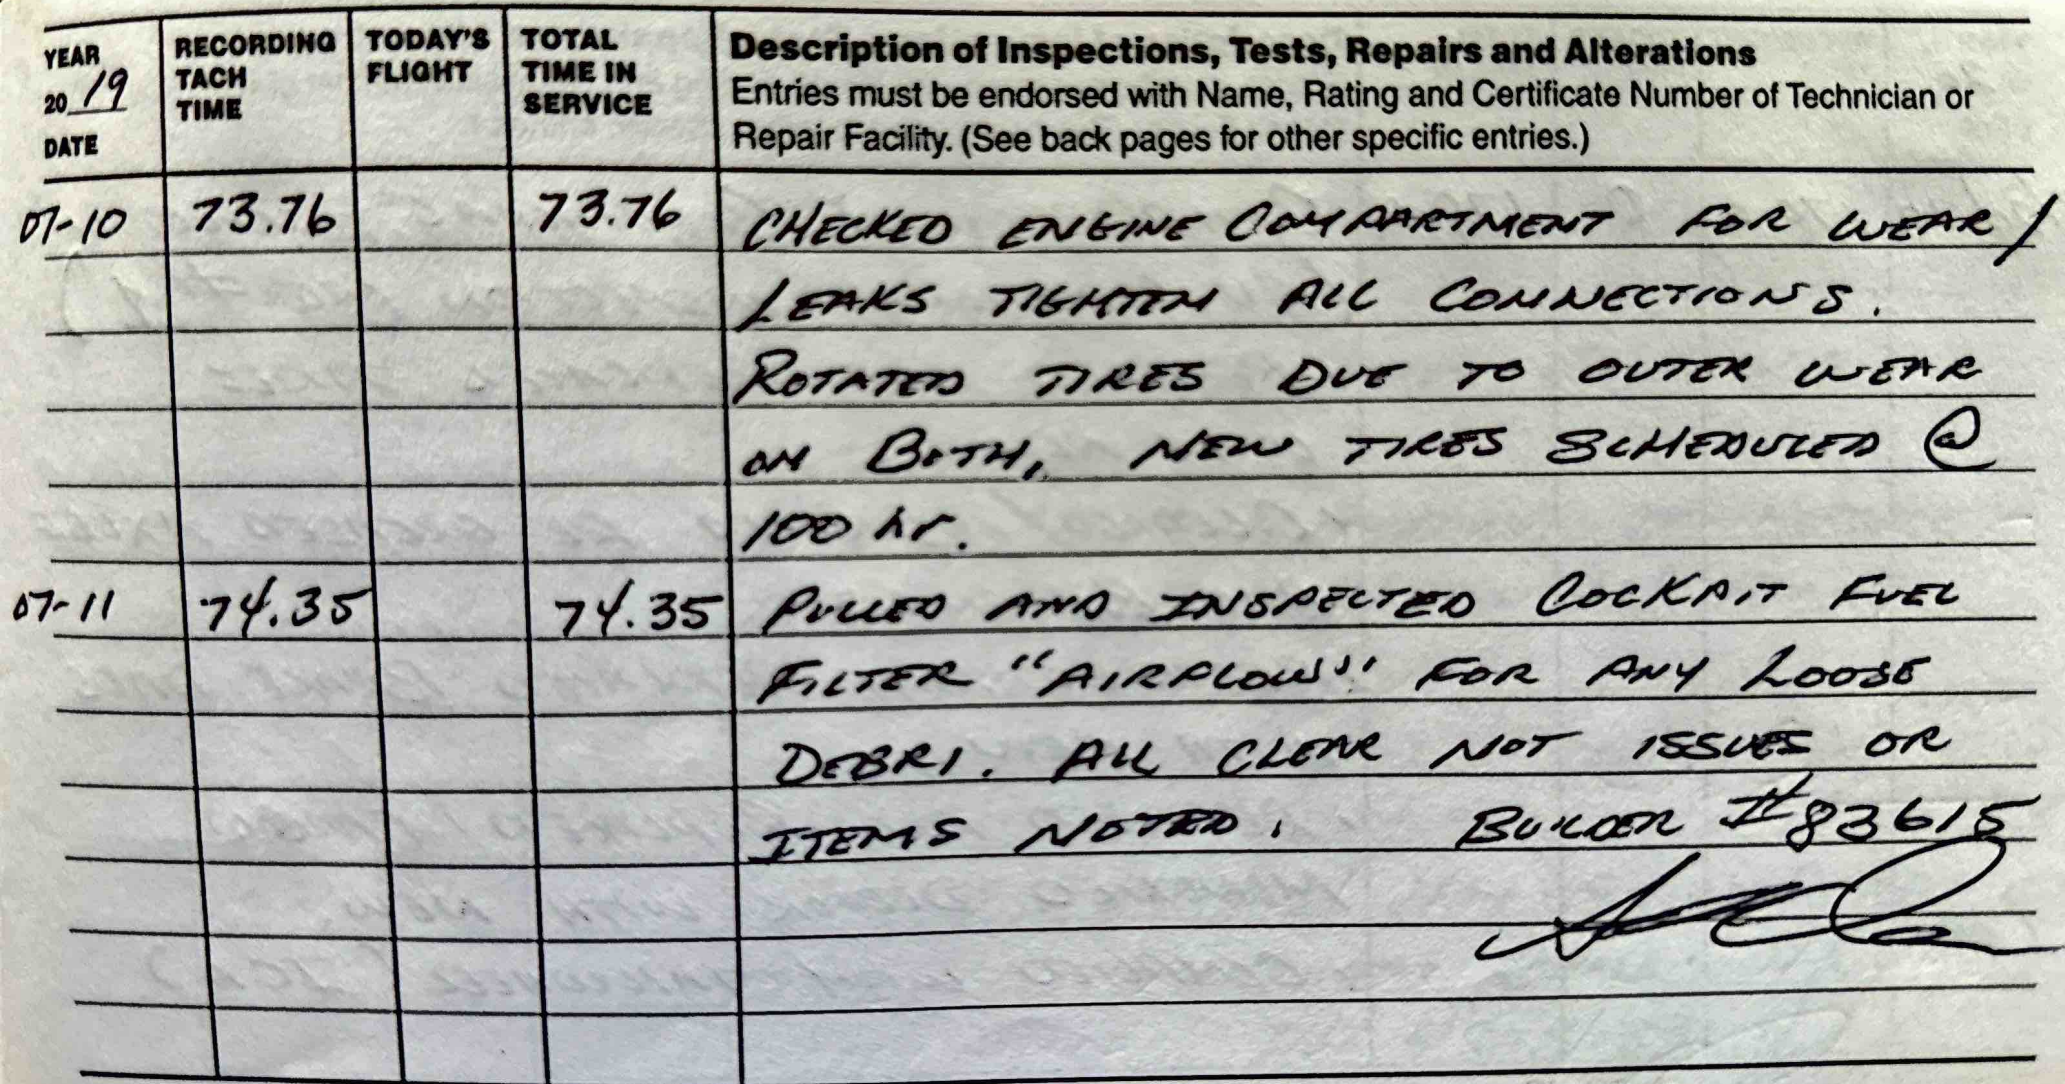 YEAR
20 19
DATE
RECORDING
TACH
TIME
TODAY'S
FLIGHT
TOTAL
TIME IN
SERVICE
Description of Inspections, Tests, Repairs and Alterations
Entries must be endorsed with Name, Rating and Certificate Number of Technician or
Repair Facility. (See back pages for other specific entries.)
07-10 73.76 73.76 CHECKED ENGINE COMPARTMENT FOR WEAR/
LEAKS TIGHTEN ALL CONNECTIONS.
ROTATED TIRES DUE TO OUTER WEAR
ON BOTH, NEW TIRES SCHEDULED @
100 hr.
07-11 74.35 74.35 PULLED AND INSPECTED COCKPIT FUEL
FILTER "AIRFLOW" FOR ANY LOOSE
DEBRI. ALL CLEAR NOT ISSUES OR
ITEMS NOTED. BUILDER #83615